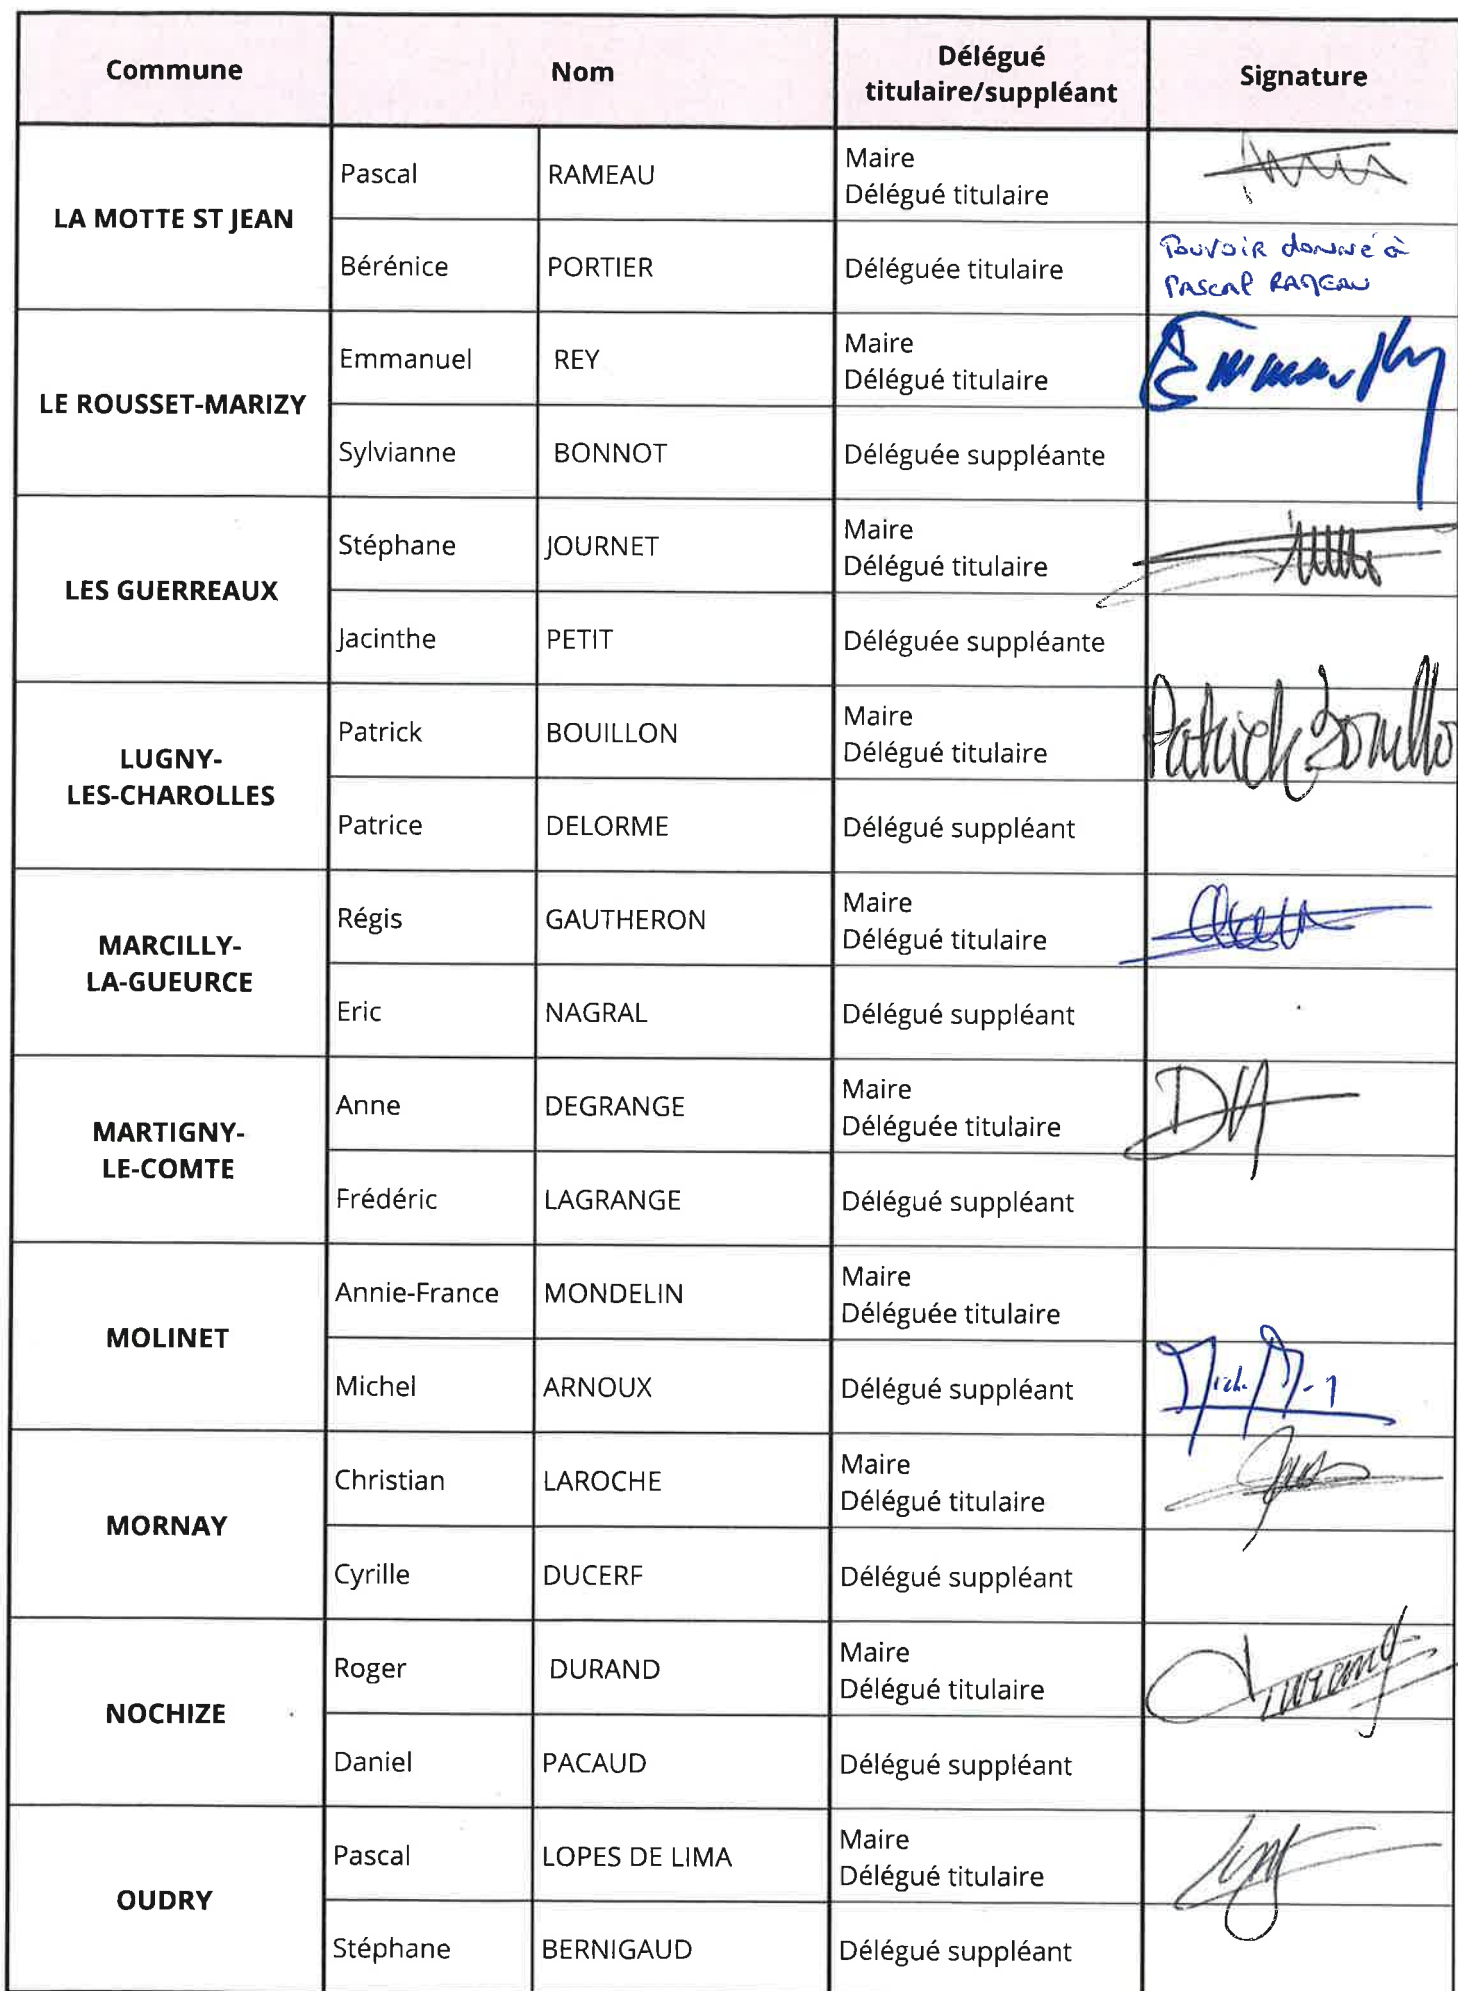 Commune Nom Délégué titulaire/suppléant Signature
LA MOTTE ST JEAN
Pascal RAMEAU Maire
Délégué titulaire
Bérénice PORTIER Déléguée titulaire Pouvoir donné à
Pascal RAMEAU
LE ROUSSET-MARIZY
Emmanuel REY Maire
Délégué titulaire
Sylvianne BONNOT Déléguée suppléante
LES GUERREAUX
Stéphane JOURNET Maire
Délégué titulaire
Jacinthe PETIT Déléguée suppléante
LUGNY-
LES-CHAROLLES
Patrick BOUILLON Maire
Délégué titulaire Patrick
Patrice DELORME Délégué suppléant
MARCILLY-
LA-GUEURCE
Régis GAUTHERON Maire
Délégué titulaire
Eric NAGRAL Délégué suppléant
MARTIGNY-
LE-COMTE
Anne DEGRANGE Maire
Déléguée titulaire
Frédéric LAGRANGE Délégué suppléant
MOLINET
Annie-France MONDELIN Maire
Déléguée titulaire
Michel ARNOUX Délégué suppléant
MORNAY
Christian LAROCHE Maire
Délégué titulaire
Cyrille DUCERF Délégué suppléant
NOCHIZE
Roger DURAND Maire
Délégué titulaire
Daniel PACAUD Délégué suppléant
OUDRY
Pascal LOPES DE LIMA Maire
Délégué titulaire
Stéphane BERNIGAUD Délégué suppléant